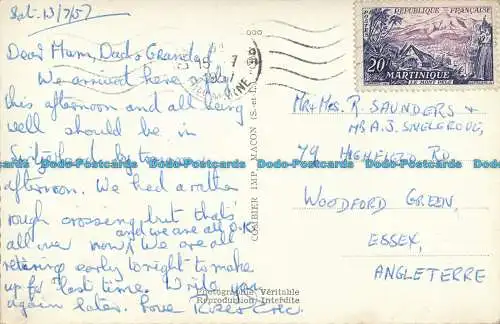 Sat. 13/7/57
Dear Mum, Dad & Grandad
We arrived here
this afternoon and all being
well should be in
Switzerland by tomorrow
afternoon. We had a rather
rough crossing, but that's
all over now, and we are all O.K.
We are all
retiring early tonight to make
up for lost time. Write you
again later. Love
COMBIER IMP. MACON (S.-et-L.)
Photographie Véritable
Reproduction Interdite
POSTES
RÉPUBLIQUE FRANÇAISE
20F
MARTINIQUE
Mr & Mrs. R. SAUNDERS &
MR A.J. SNELGROVE,
79 HIGHFIELD RD
WOODFORD GREEN,
ESSEX,
ANGLETERRE
Dodo-Postcards Dodo-Postcards Dodo-Postcards Dodo-Postcards